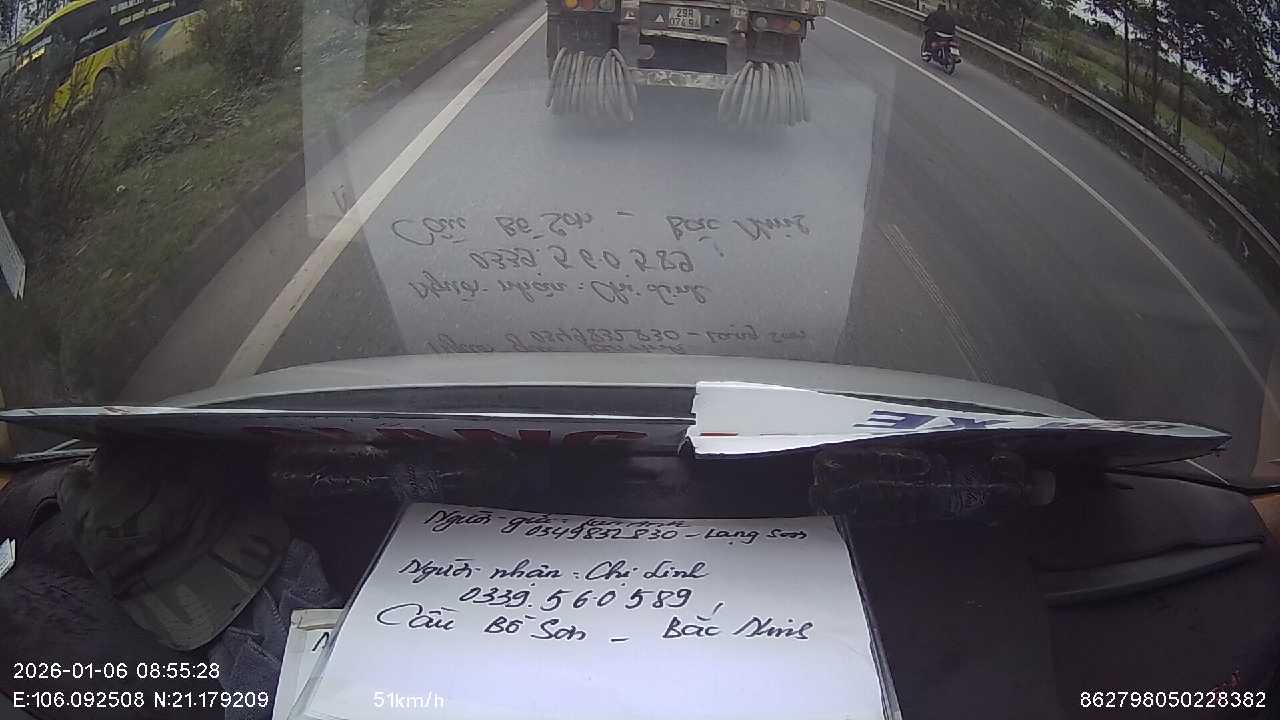 29R
Người nhận: Chị Linh
0339.560589
Cầu Bồ Sơn - Bắc Ninh
Người gửi:
0349832830 - Lạng Sơn
XE
2026-01-06 08:55:28
E:106.092508 N:21.179209
51km/h
862798050228382